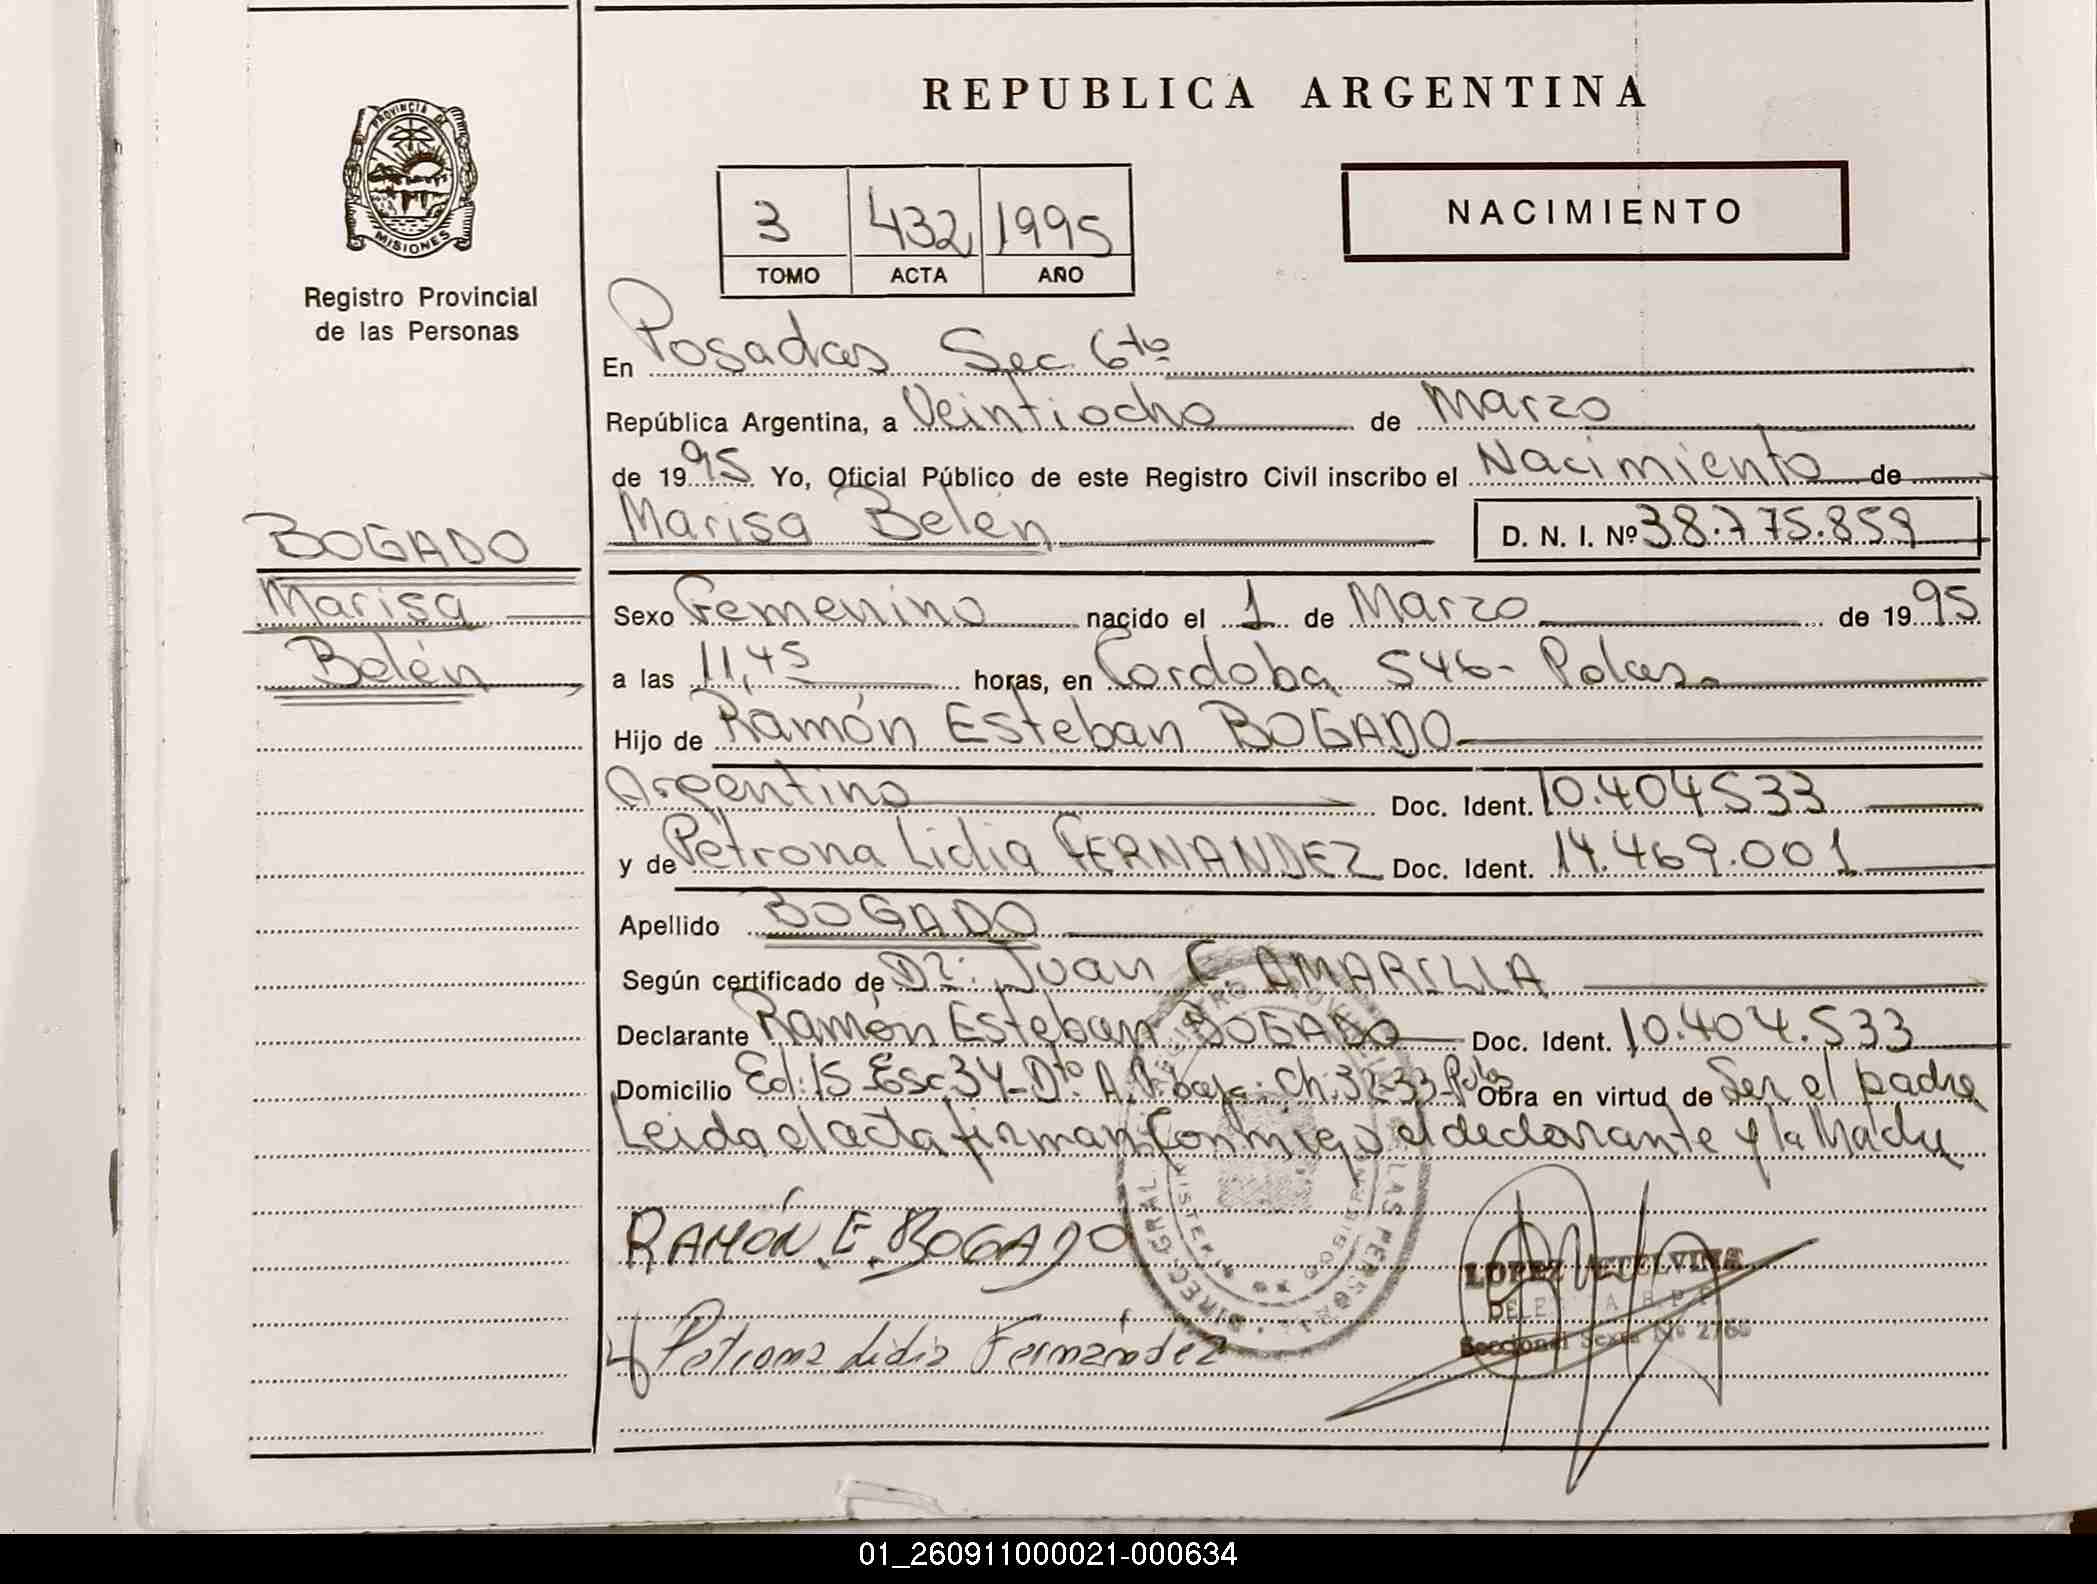 REPUBLICA ARGENTINA
PROVINCIA DE
MISIONES
Registro Provincial
de las Personas
3 432 1995
TOMO ACTA AÑO
NACIMIENTO
En Posadas Sec. 6ta
República Argentina, a Veintiocho de Marzo
de 1995 Yo, Oficial Público de este Registro Civil inscribo el Nacimiento de
Marisa Belén D. N. I. Nº 38.775.859
BOGADO
Marisa
Belén
Sexo Femenino nacido el 1 de Marzo de 1995
a las 11,45 horas, en Cordoba 546- Pdas.
Hijo de Ramón Esteban BOGADO
Argentino Doc. Ident. 10.404533
y de Petrona Lidia FERNANDEZ Doc. Ident. 14.469.001
Apellido BOGADO
Según certificado de Dr: Juan C AMARILLA
Declarante Ramón Esteban BOGADO Doc. Ident. 10.404.533
Domicilio Ed:15-Esc34-Dto A. P. baja. Ch:32-33-Pdas Obra en virtud de Ser el padre
Leida el acta firman Conmigo el declarante y la Madre
RAMÓN E. BOGADO
Petrona Lidia Fernández
LOPEZ ETELVINA
Seccional Sexta Nº
01_260911000021-000634